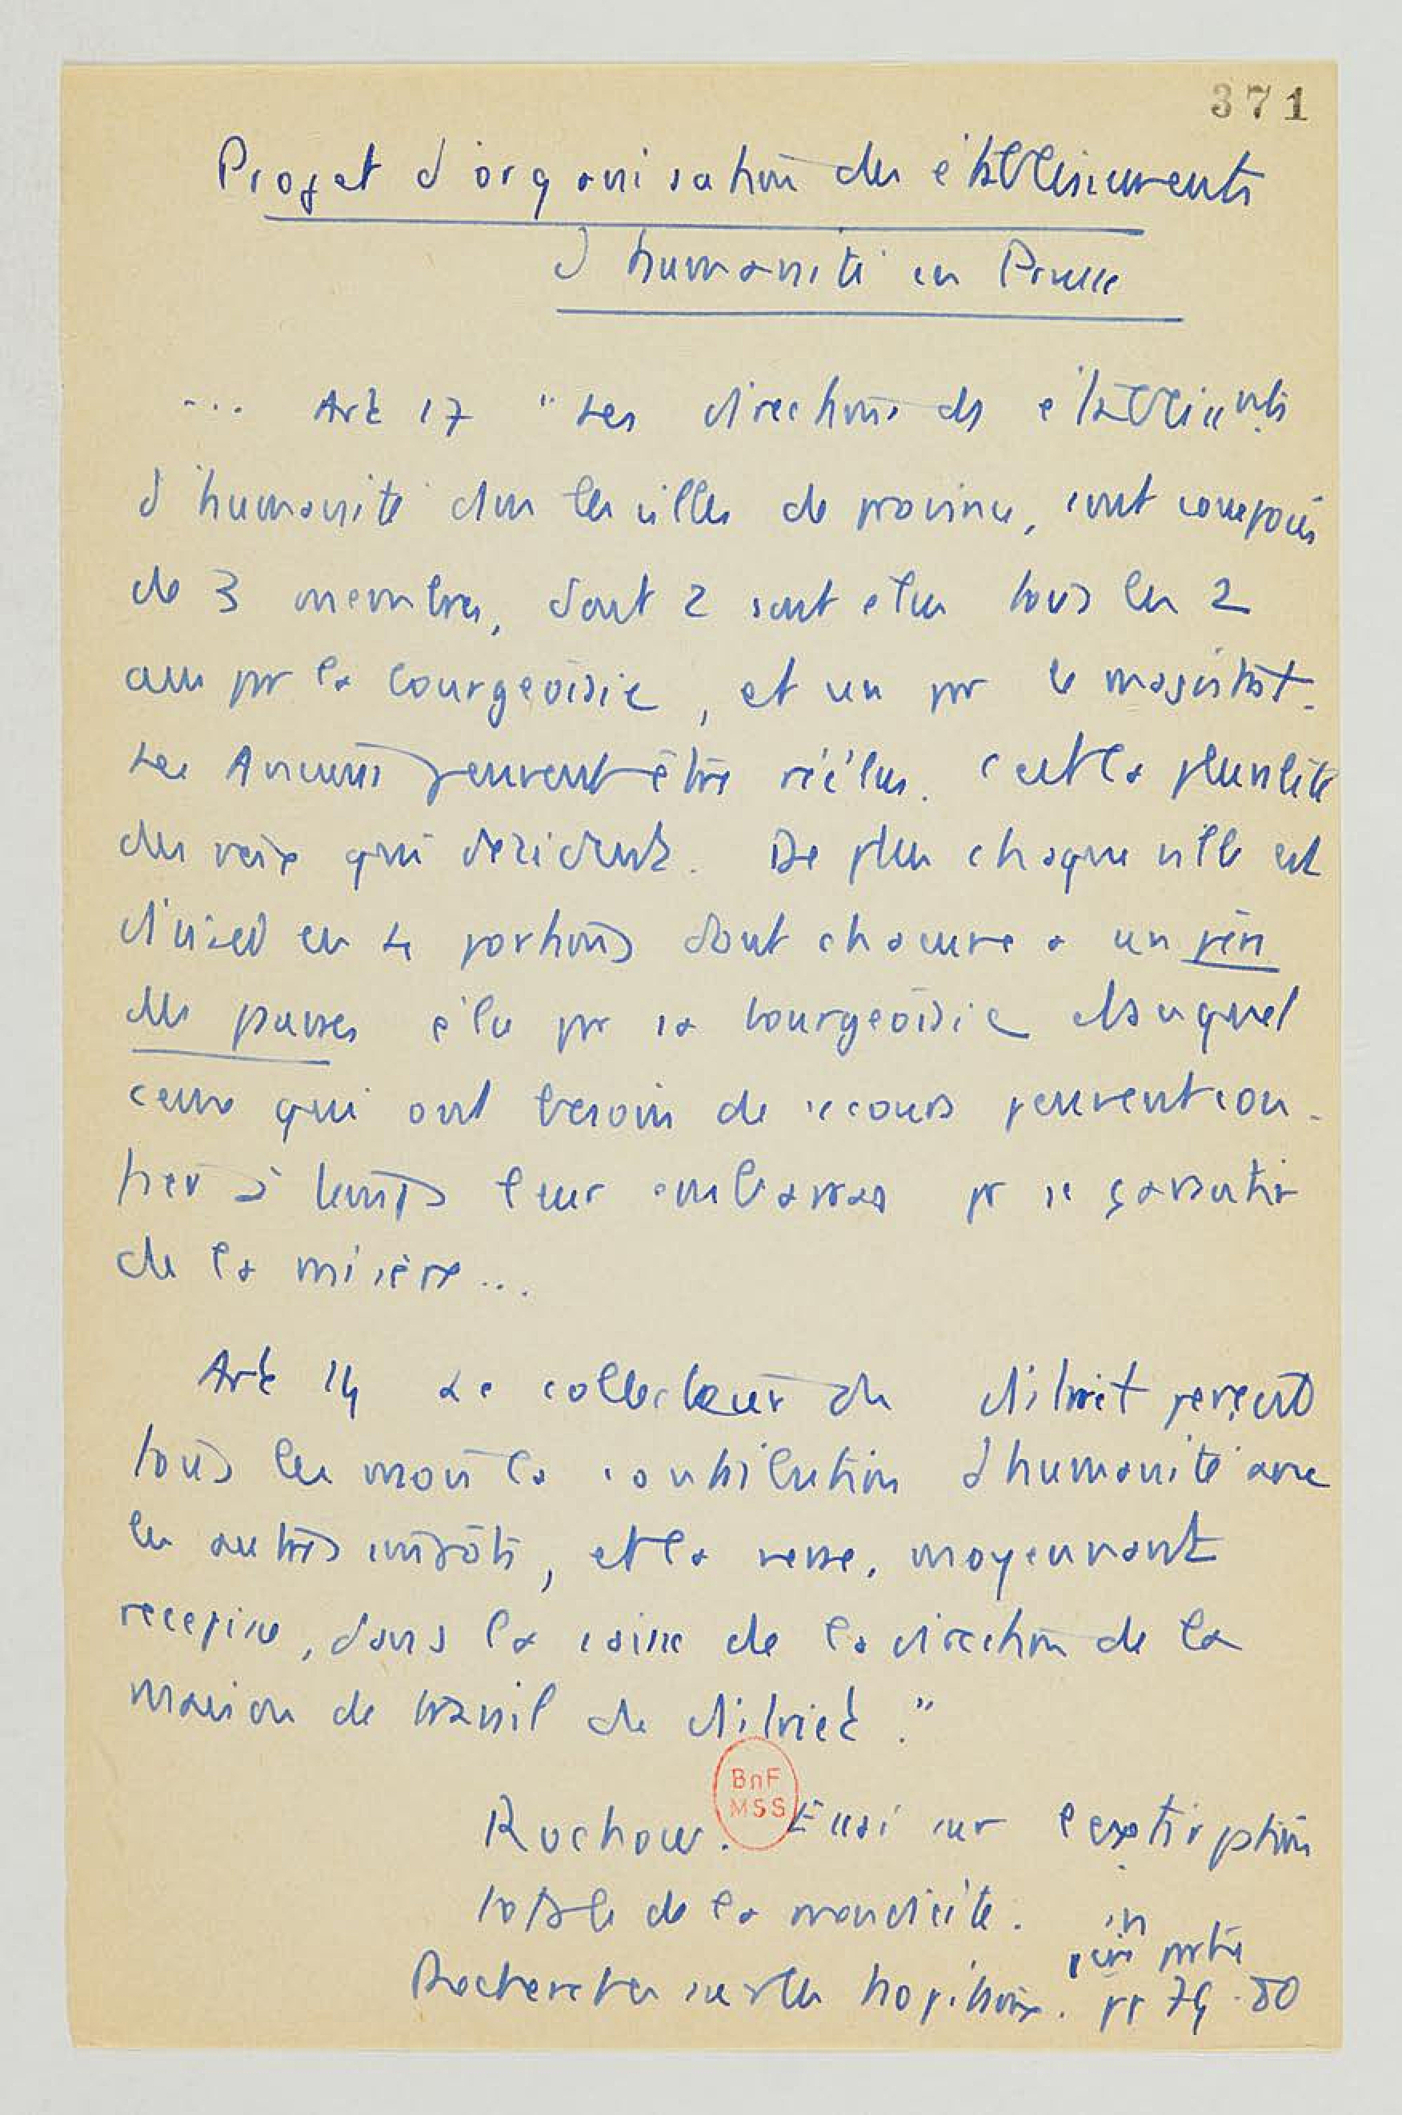 371
Projet d'organisation des établissements
d'humanité en Prusse
... Art 17 "Les directions des établissements
d'humanité dans les villes de province, sont composées
de 3 membres, dont 2 sont élus tous les 2
ans par la bourgeoisie, et un par le magistrat.
Les Anciens peuvent être réélus. C'est la pluralité
des voix qui décident. De plus chaque ville est
divisée en 4 portions dont chacune a un père
des pauvres élu par la bourgeoisie auquel
ceux qui ont besoin de secours peuvent con-
fier à temps leur embarras pr se garantir
de la misère...
Art 14 Le collecteur du district perçoit
tous les mois la contribution d'humanité avec
les autres impôts, et la verse, moyennant
récépissé, dans la caisse de la direction de la
maison de travail du district."
BnF
MSS
Rochow. Essai sur l'extirpation
totale de la mendicité. in
1ère partie
Recherches sur les hôpitaux. pp 79-80